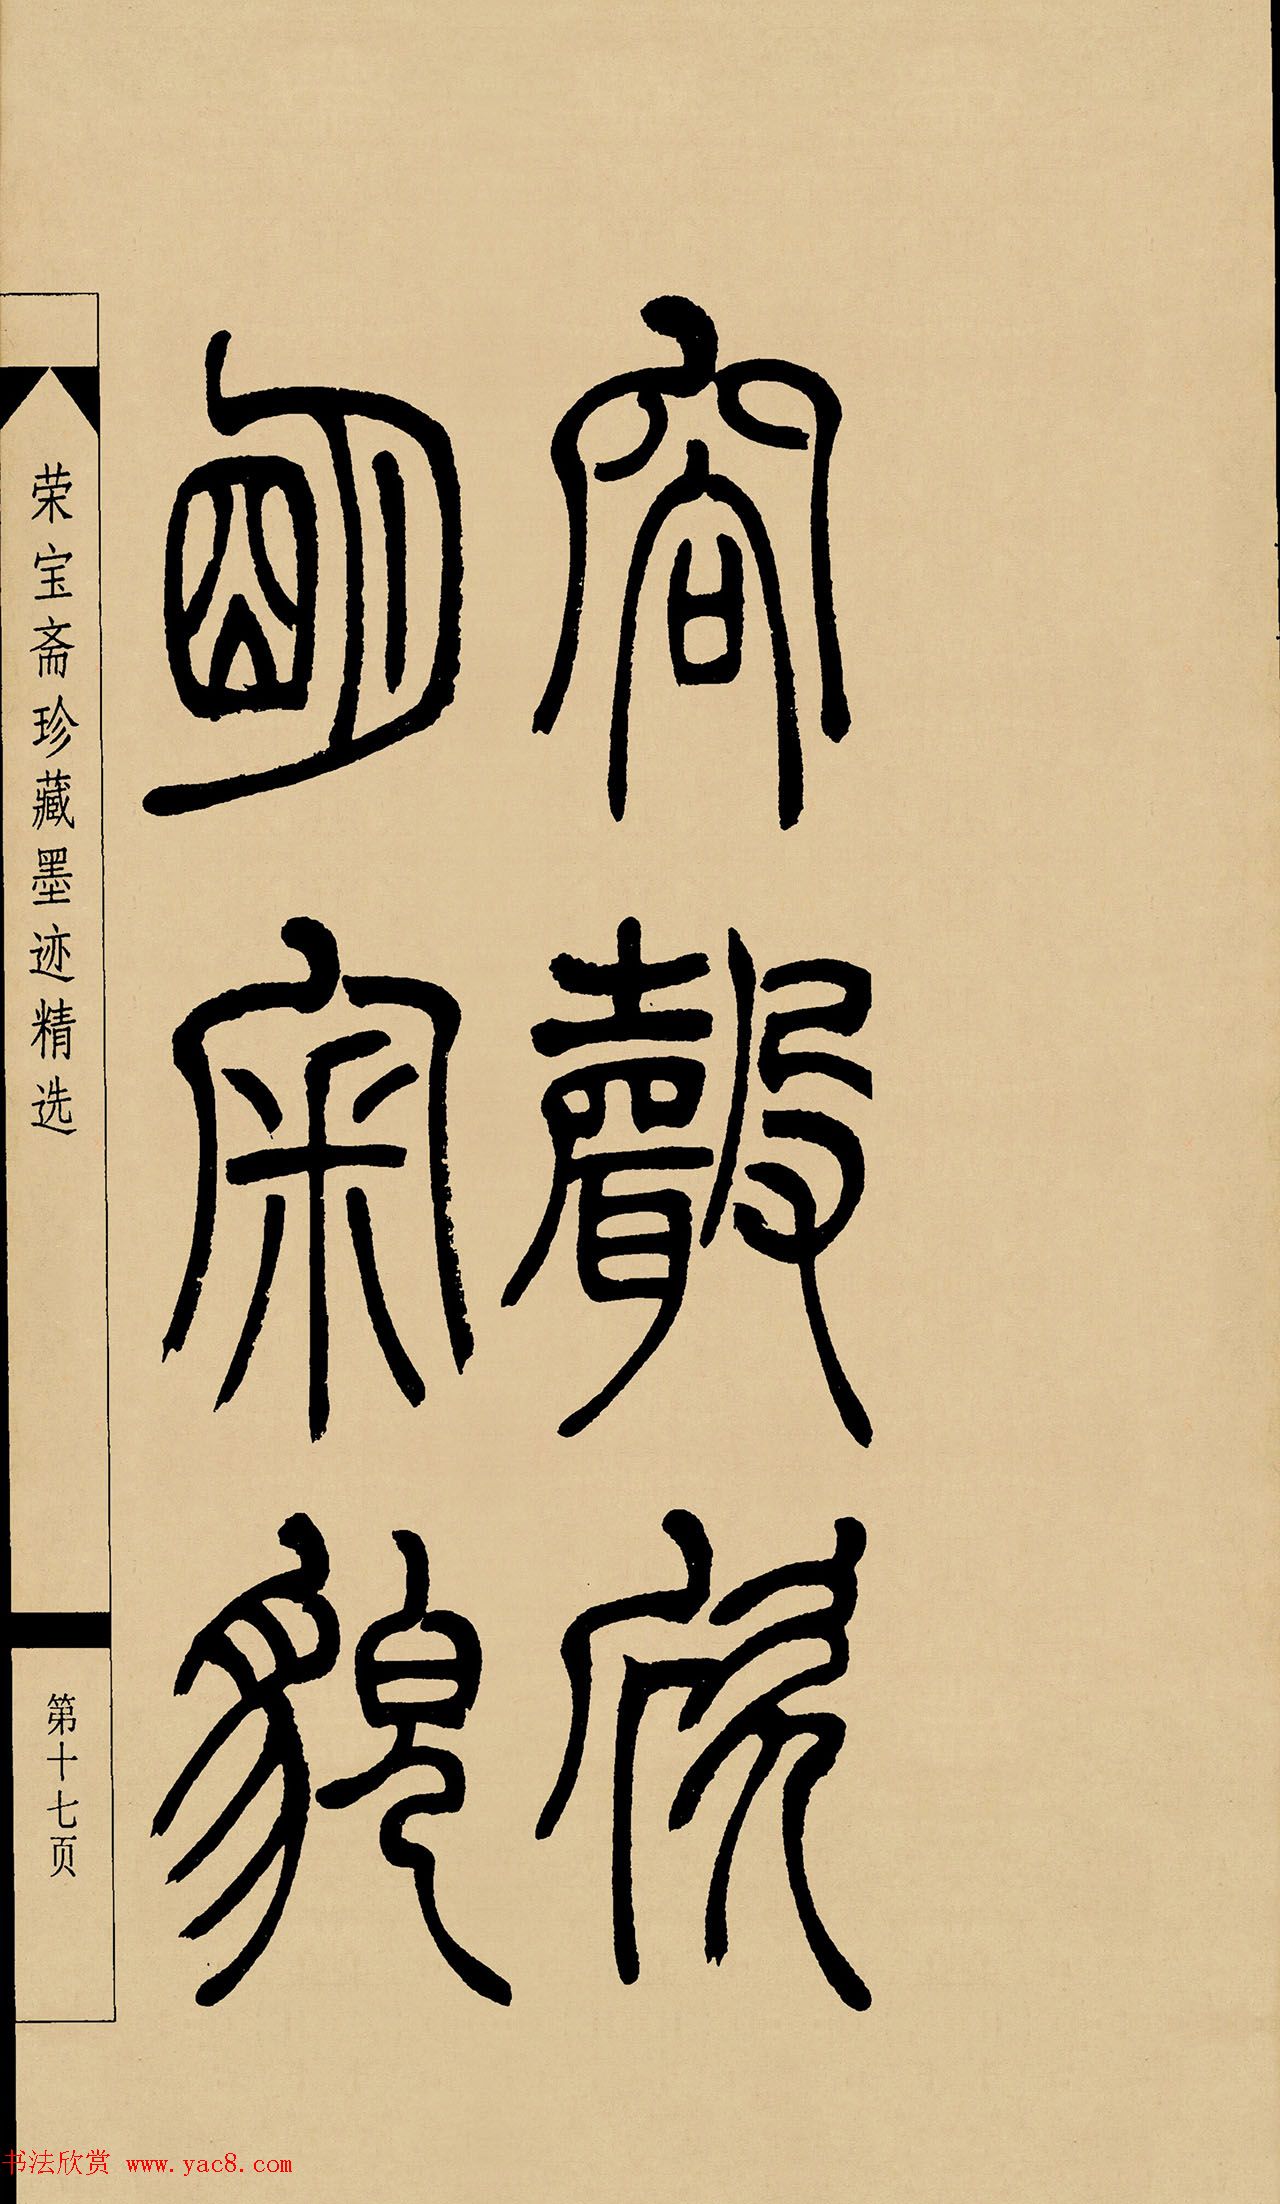 容聲欣
朙宷貌
荣宝斋珍藏墨迹精选
第十七页
书法欣赏 www.yac8.com